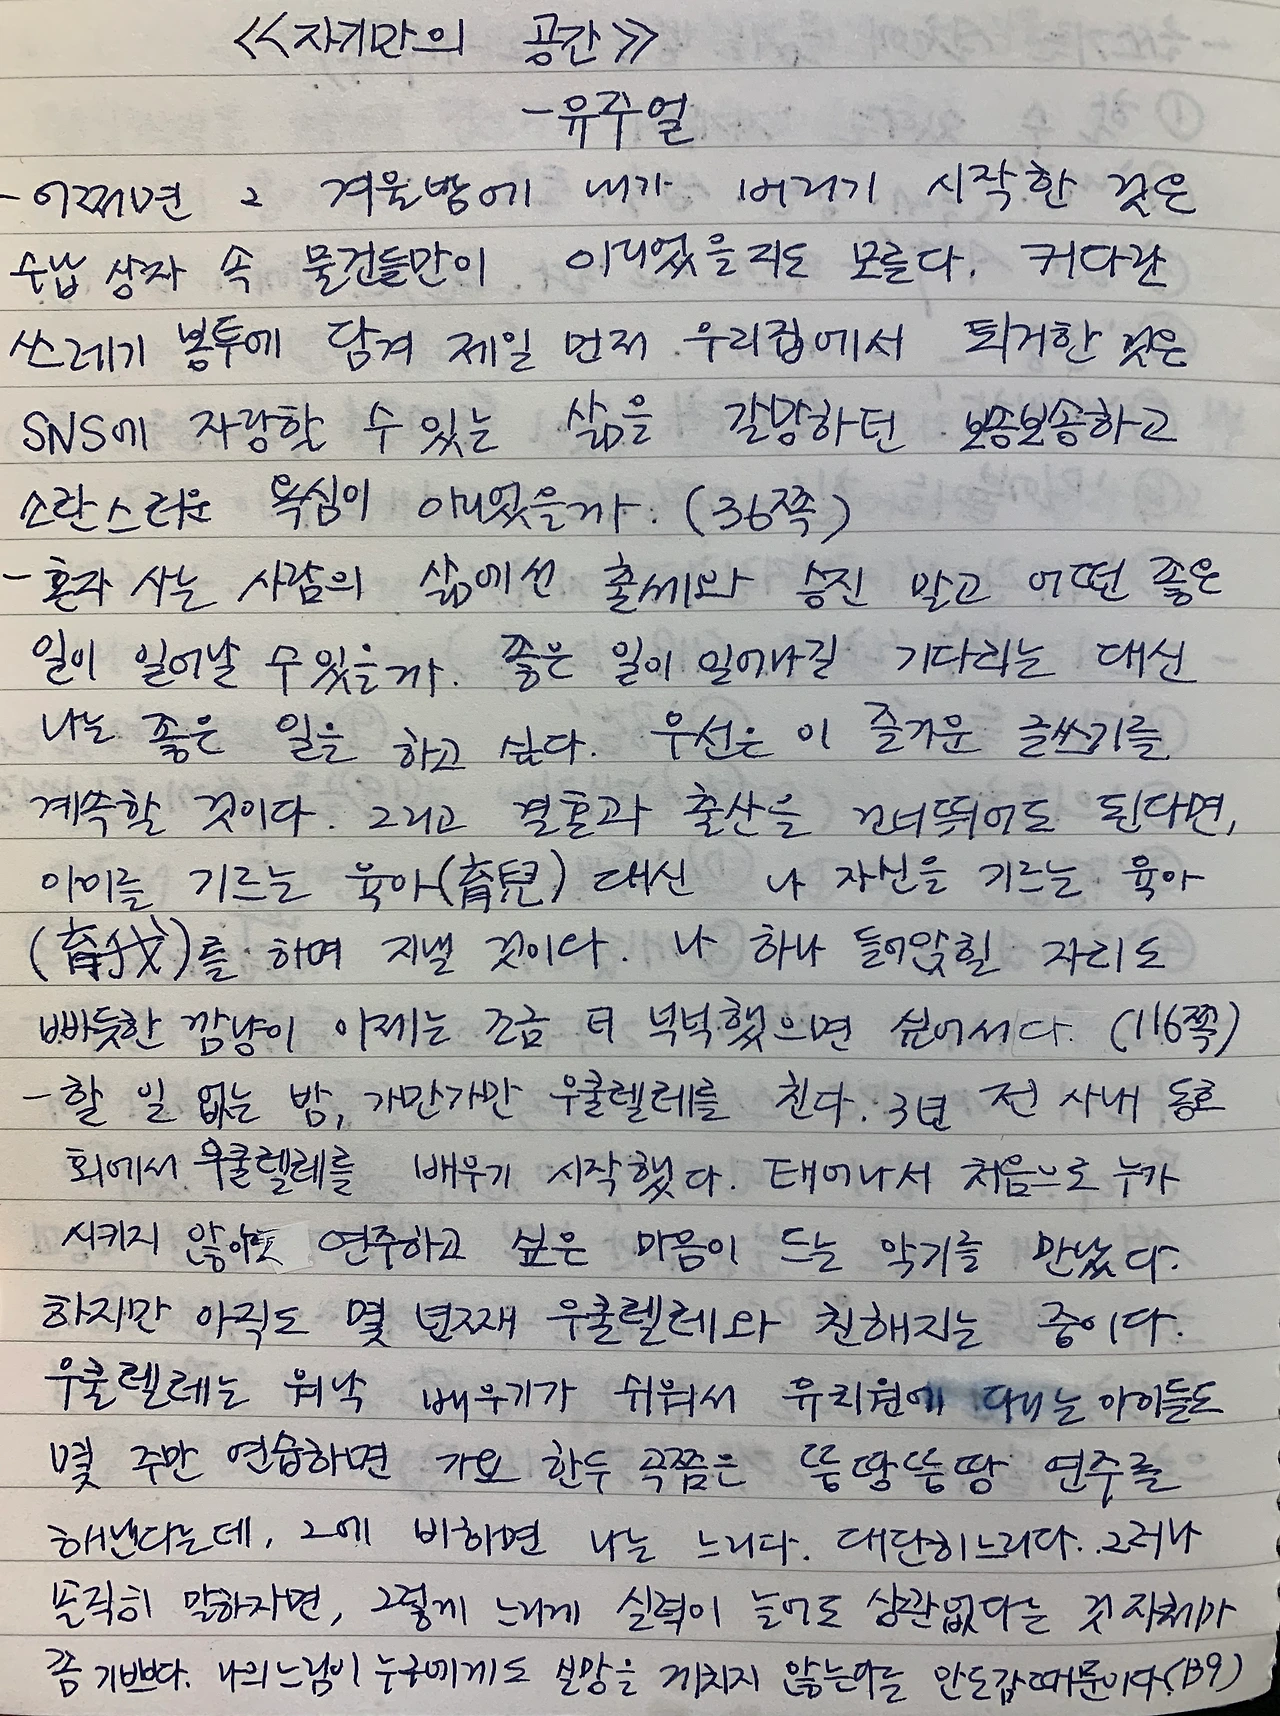 <<자기만의 공간>>
-유주얼
-어쩌면 그 겨울밤에 내가 버리기 시작한 것은
수납 상자 속 물건들만이 아니었을지도 모른다. 커다란
쓰레기 봉투에 담겨 제일 먼저 우리집에서 퇴거한 것은
SNS에 자랑할 수 있는 삶을 갈망하던 보송보송하고
소란스러운 욕심이 아니었을까. (36쪽)
-혼자 사는 사람의 삶에선 출세와 승진 말고 어떤 좋은
일이 일어날 수 있을까. 좋은 일이 일어나길 기다리는 대신
나는 좋은 일을 하고 싶다. 우선은 이 즐거운 글쓰기를
계속할 것이다. 그리고 결혼과 출산을 건너뛰어도 된다면,
아이를 기르는 육아(育兒) 대신 나 자신을 기르는 육아
(育我)를 하며 지낼 것이다. 나 하나 들어앉힐 자리도
빠듯한 깜냥이 이제는 조금 더 넉넉했으면 싶어서다. (116쪽)
-할 일 없는 밤, 가만가만 우쿨렐레를 친다. 3년 전 사내 동호
회에서 우쿨렐레를 배우기 시작했다. 태어나서 처음으로 누가
시키지 않아도 연주하고 싶은 마음이 드는 악기를 만났다.
하지만 아직도 몇 년째 우쿨렐레와 친해지는 중이다.
우쿨렐레는 워낙 배우기가 쉬워서 유치원에 다니는 아이들도
몇 주만 연습하면 가요 한두 곡쯤은 뚱땅뚱땅 연주를
해낸다는데, 그에 비하면 나는 느리다. 대단히 느리다. 그러나
솔직히 말하자면, 그렇게 느리게 실력이 늘어도 상관없다는 것 자체가
좀 기쁘다. 나의 느림이 누구에게도 실망을 끼치지 않는다는 안도감 때문이다.(139)